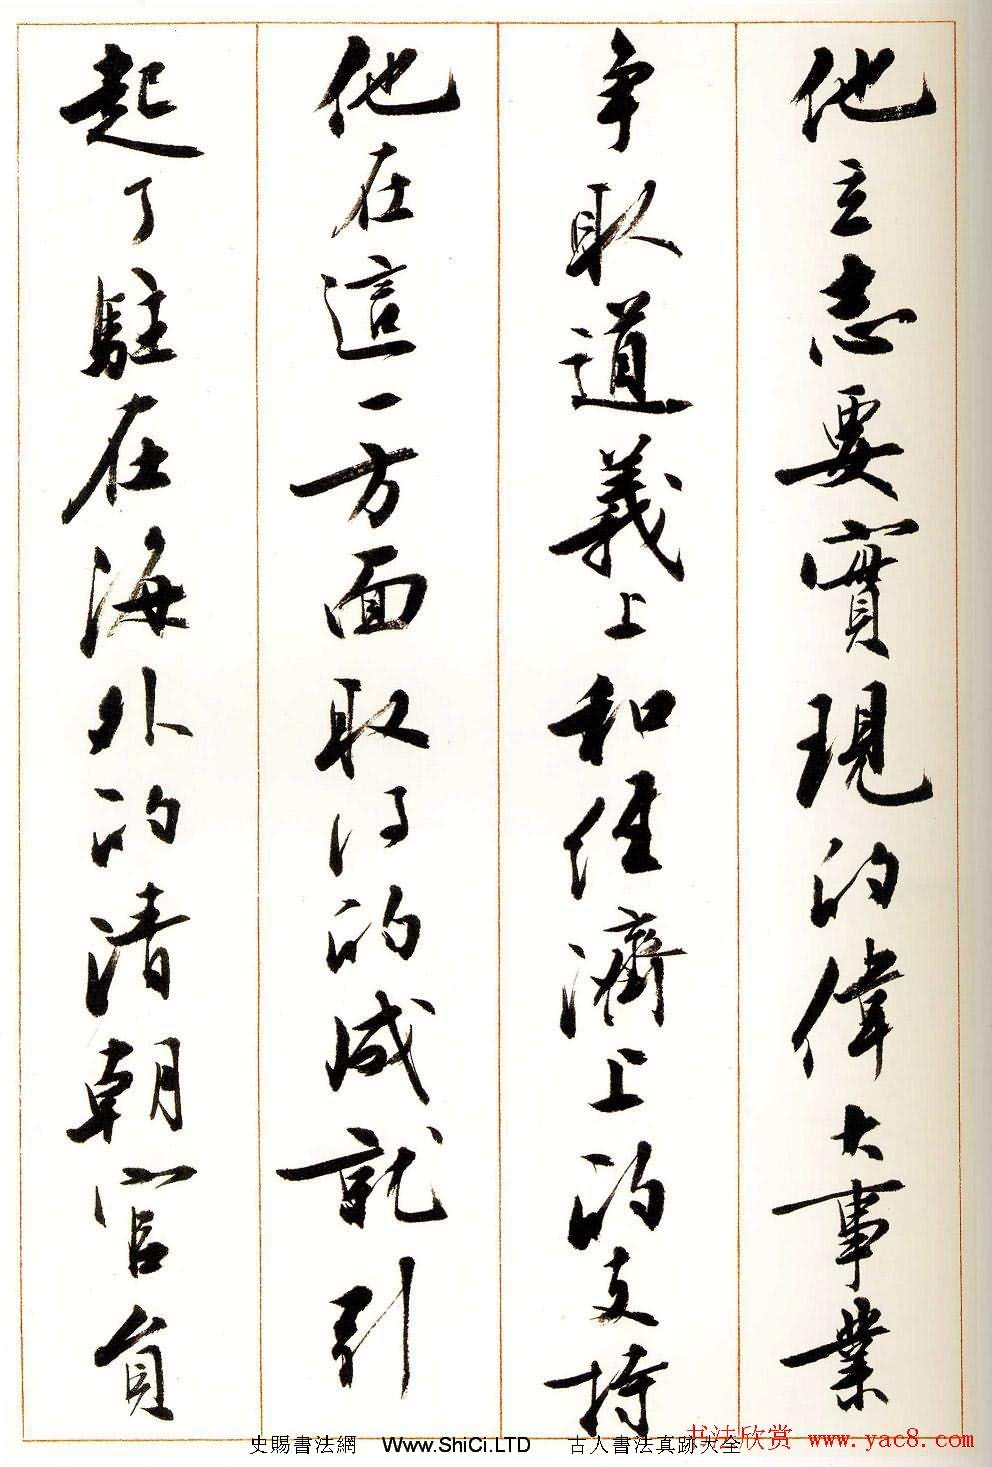 他立志要實現的偉大事業
争取道義上和經濟上的支持
他在這一方面取得的成就引
起了駐在海外的清朝官員
史賜書法網 Www.ShiCi.LTD 古人書法真跡大全
书法欣赏 www.yac8.com